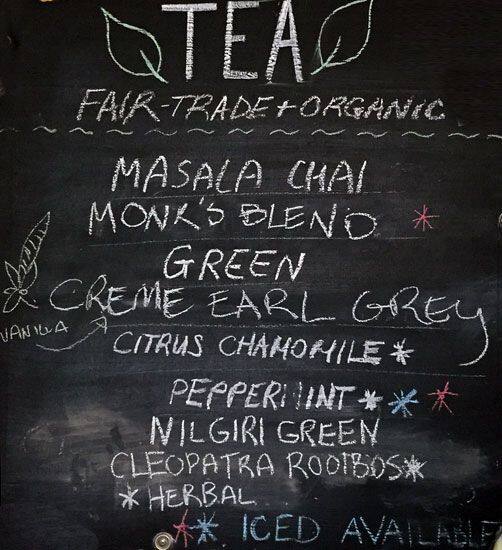 TEA
FAIR-TRADE + ORGANIC
MASALA CHAI
MONK'S BLEND *
GREEN
CREME EARL GREY
VANILLA
CITRUS CHAMOMILE *
PEPPERMINT * * *
NILGIRI GREEN
CLEOPATRA ROOIBOS *
* HERBAL
* * ICED AVAILABLE